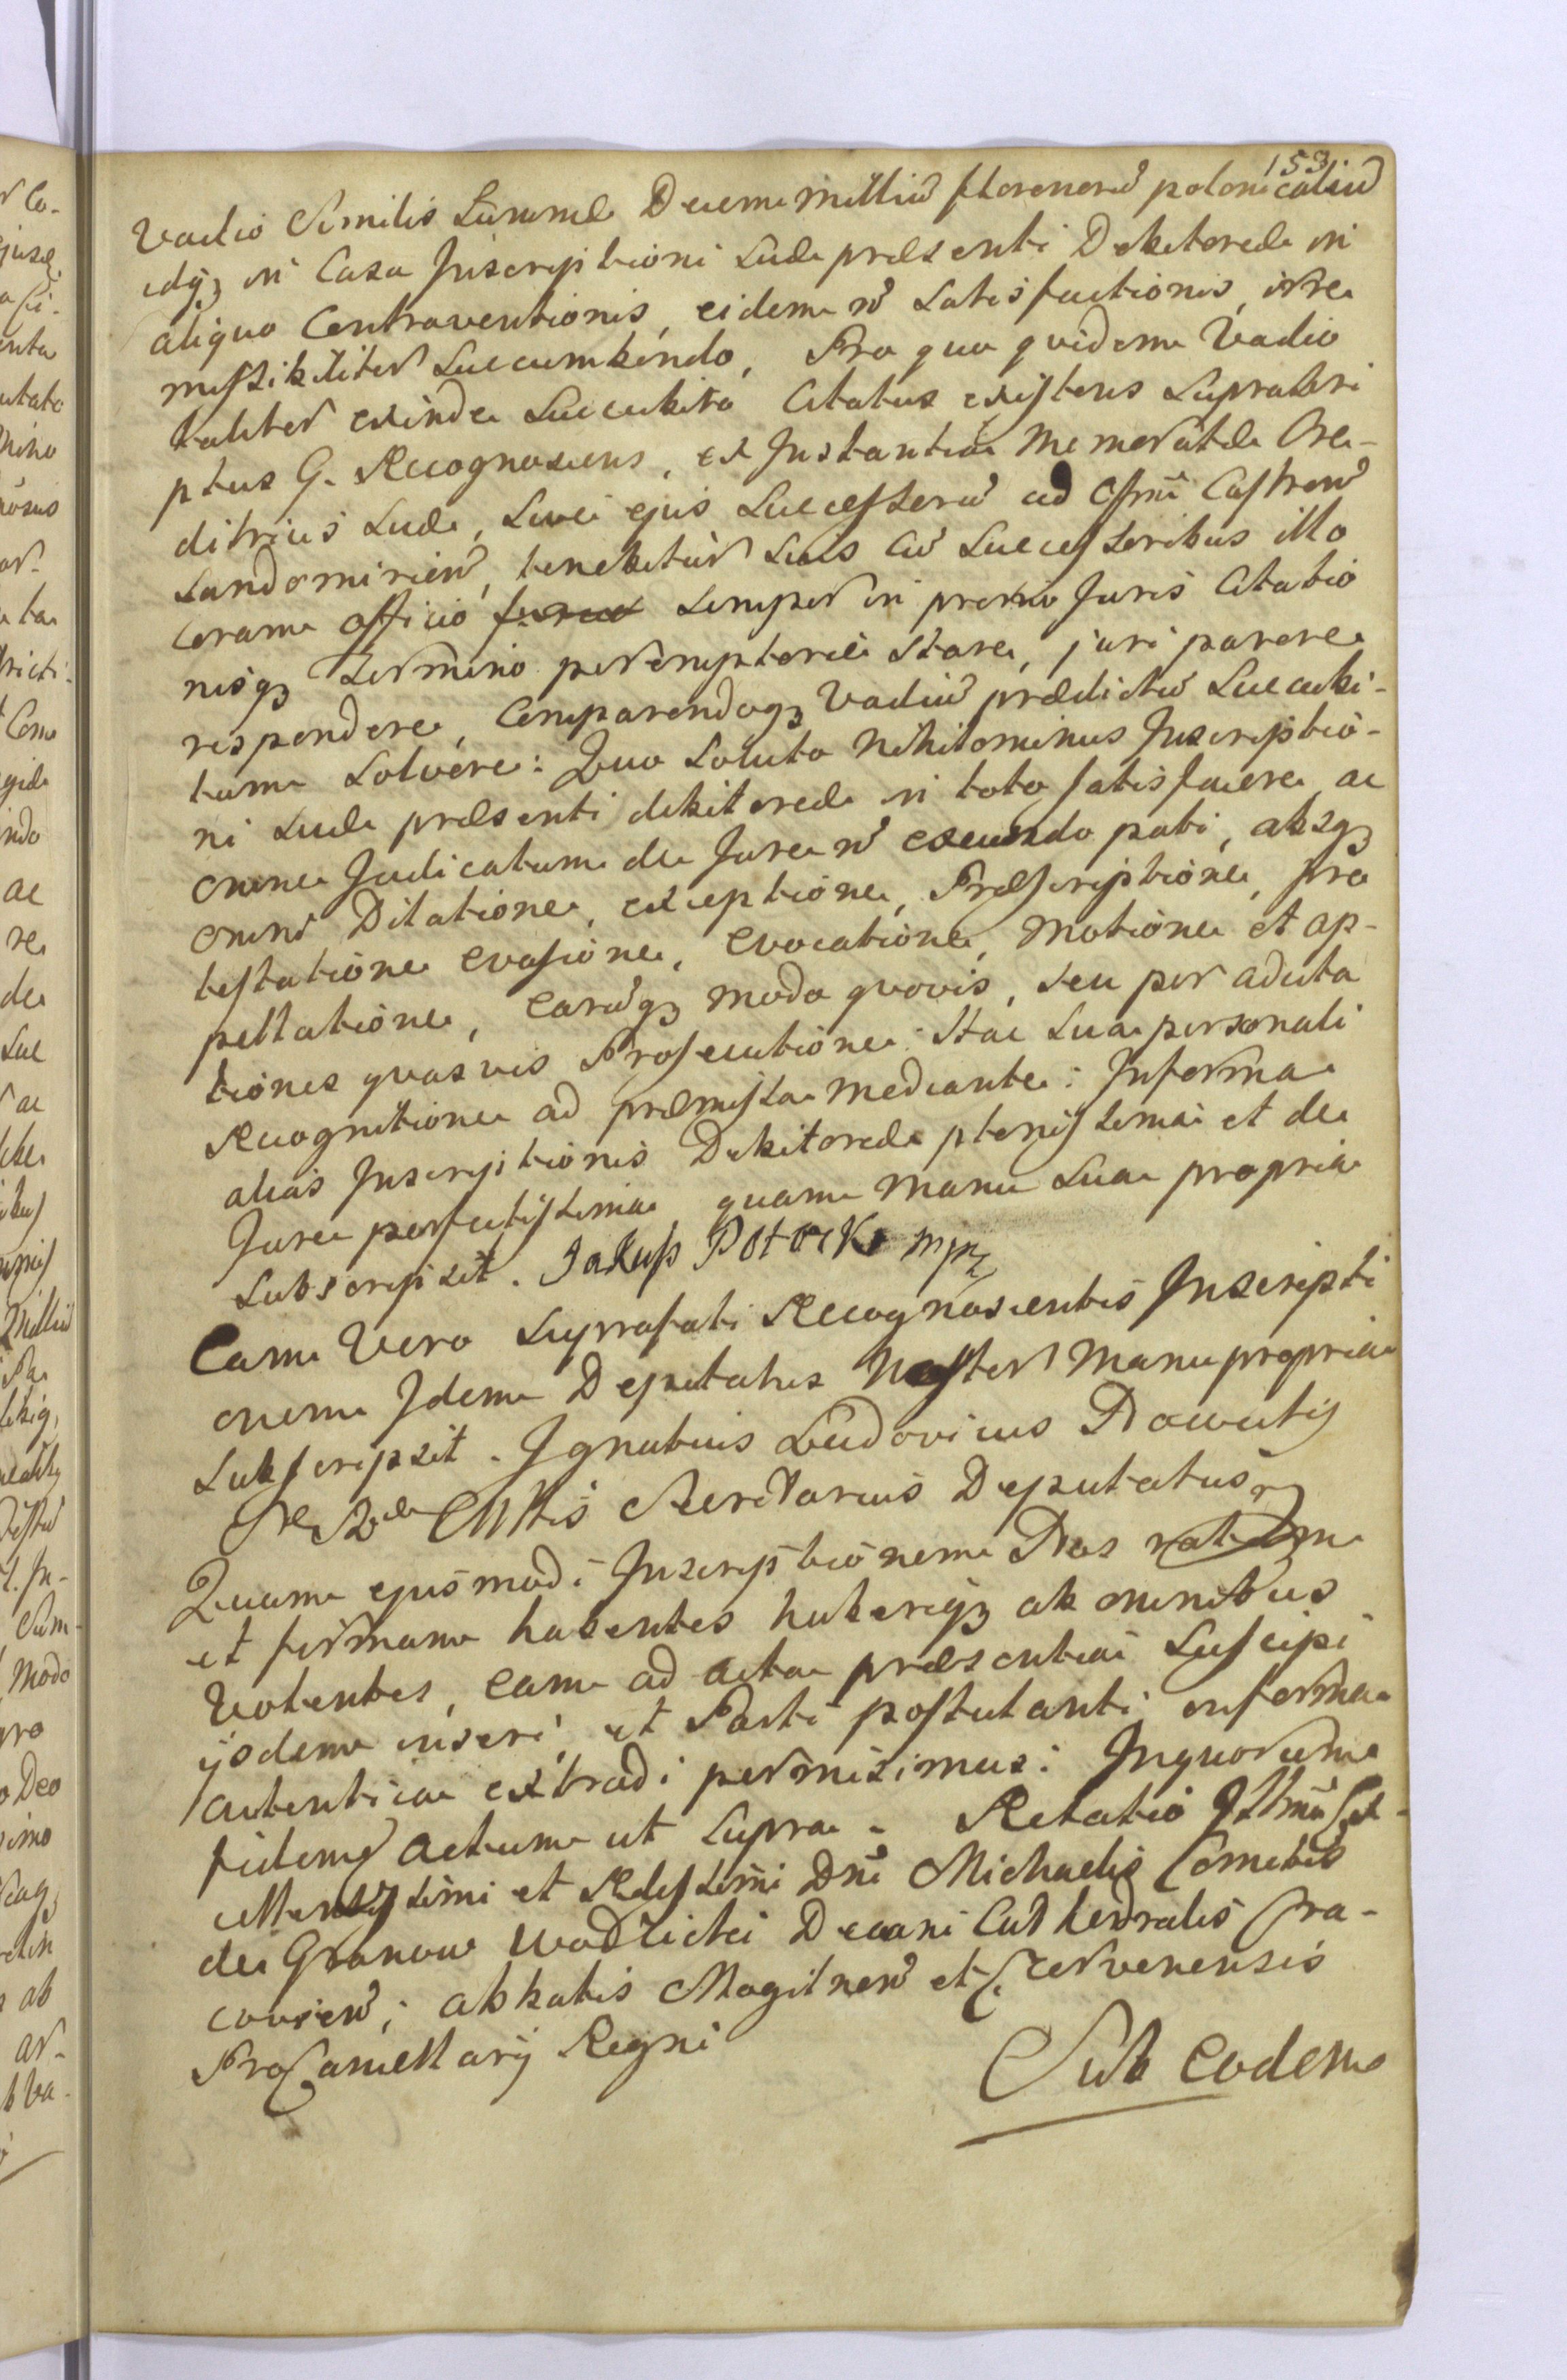 153
Vadio Similis Summæ Decem Milliũ florenorũ polonicaliũ
idq; in Casu Inscriptioni Suæ præsenti Debitoreæ in
aliquo Contraventionis, eidem ñ Satisfactionis, irre
missibiliter Succumbendo, Pro quo quidem Vadio
taliter exinde Succubito Citatus existens Suprascri
ptus G. Recognoscens, ex Instantia Memoratæ Cre-
ditricis Suæ, Sive ejus Successorũ ad Offñi Castrenũ
Sandomirieñ, tenebitur Suis cũ Successoribus illo
Coram officio Semper in primo Juris Citatio
nisq; Termino peremptorie Stare, juri parere
respondere, Comparendoq; Vadiũ prædictũ Succubi-
tum Solvere: Quo Soluto Nihilominus Inscriptio-
ni Suæ præsenti debitoreæ in toto satisfacere, ac
omne Judicatum de Jure ñ exeundo pati, absq;
omni Dilatione, exceptione, Præscriptione, pro
testatione evasione, evocatione, motione et ap-
pellatione, earũq; modo quovis, seu per adcita
tiones quasvis Prosecutione: Hac Sua personali
Recognitione ad præmissa mediante: Informa
alias Inscriptionis Debitoreæ plenissima et de
Jure perfectissima quam manu Sua propria
Subscripsit. Jakub Potocki mpp
Eam Vero Suprafati Recognoscentis Inscripti
onem Idem Deputatus Noster Manu propria
Subscripsit. Ignatius Ludovicus Nowe
Secretarius Deputatus
Quam ejusmodi Inscriptionem Nos ratam
et firmam habentes haberiq; ab omnibus
Volentes, eam ad acta præsentia Suscipi
ijsdem inseri, et Parti postulanti informa
autentica extradi permisimus: Inquorum
fidem Actum ut Supra. Relatio Illmi Ex-
cellentissimi et Rdissimi Dñi Michaelis Comitis
de Granow Wodzicki Decani Cathedralis Cra-
covieñ, Abbatis Mogilneñ et Czervenensis
ProCancellarij Regni
Sub eodem